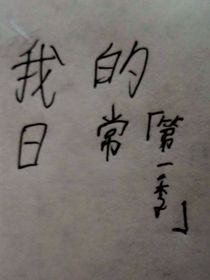 我的
日常「第一季」